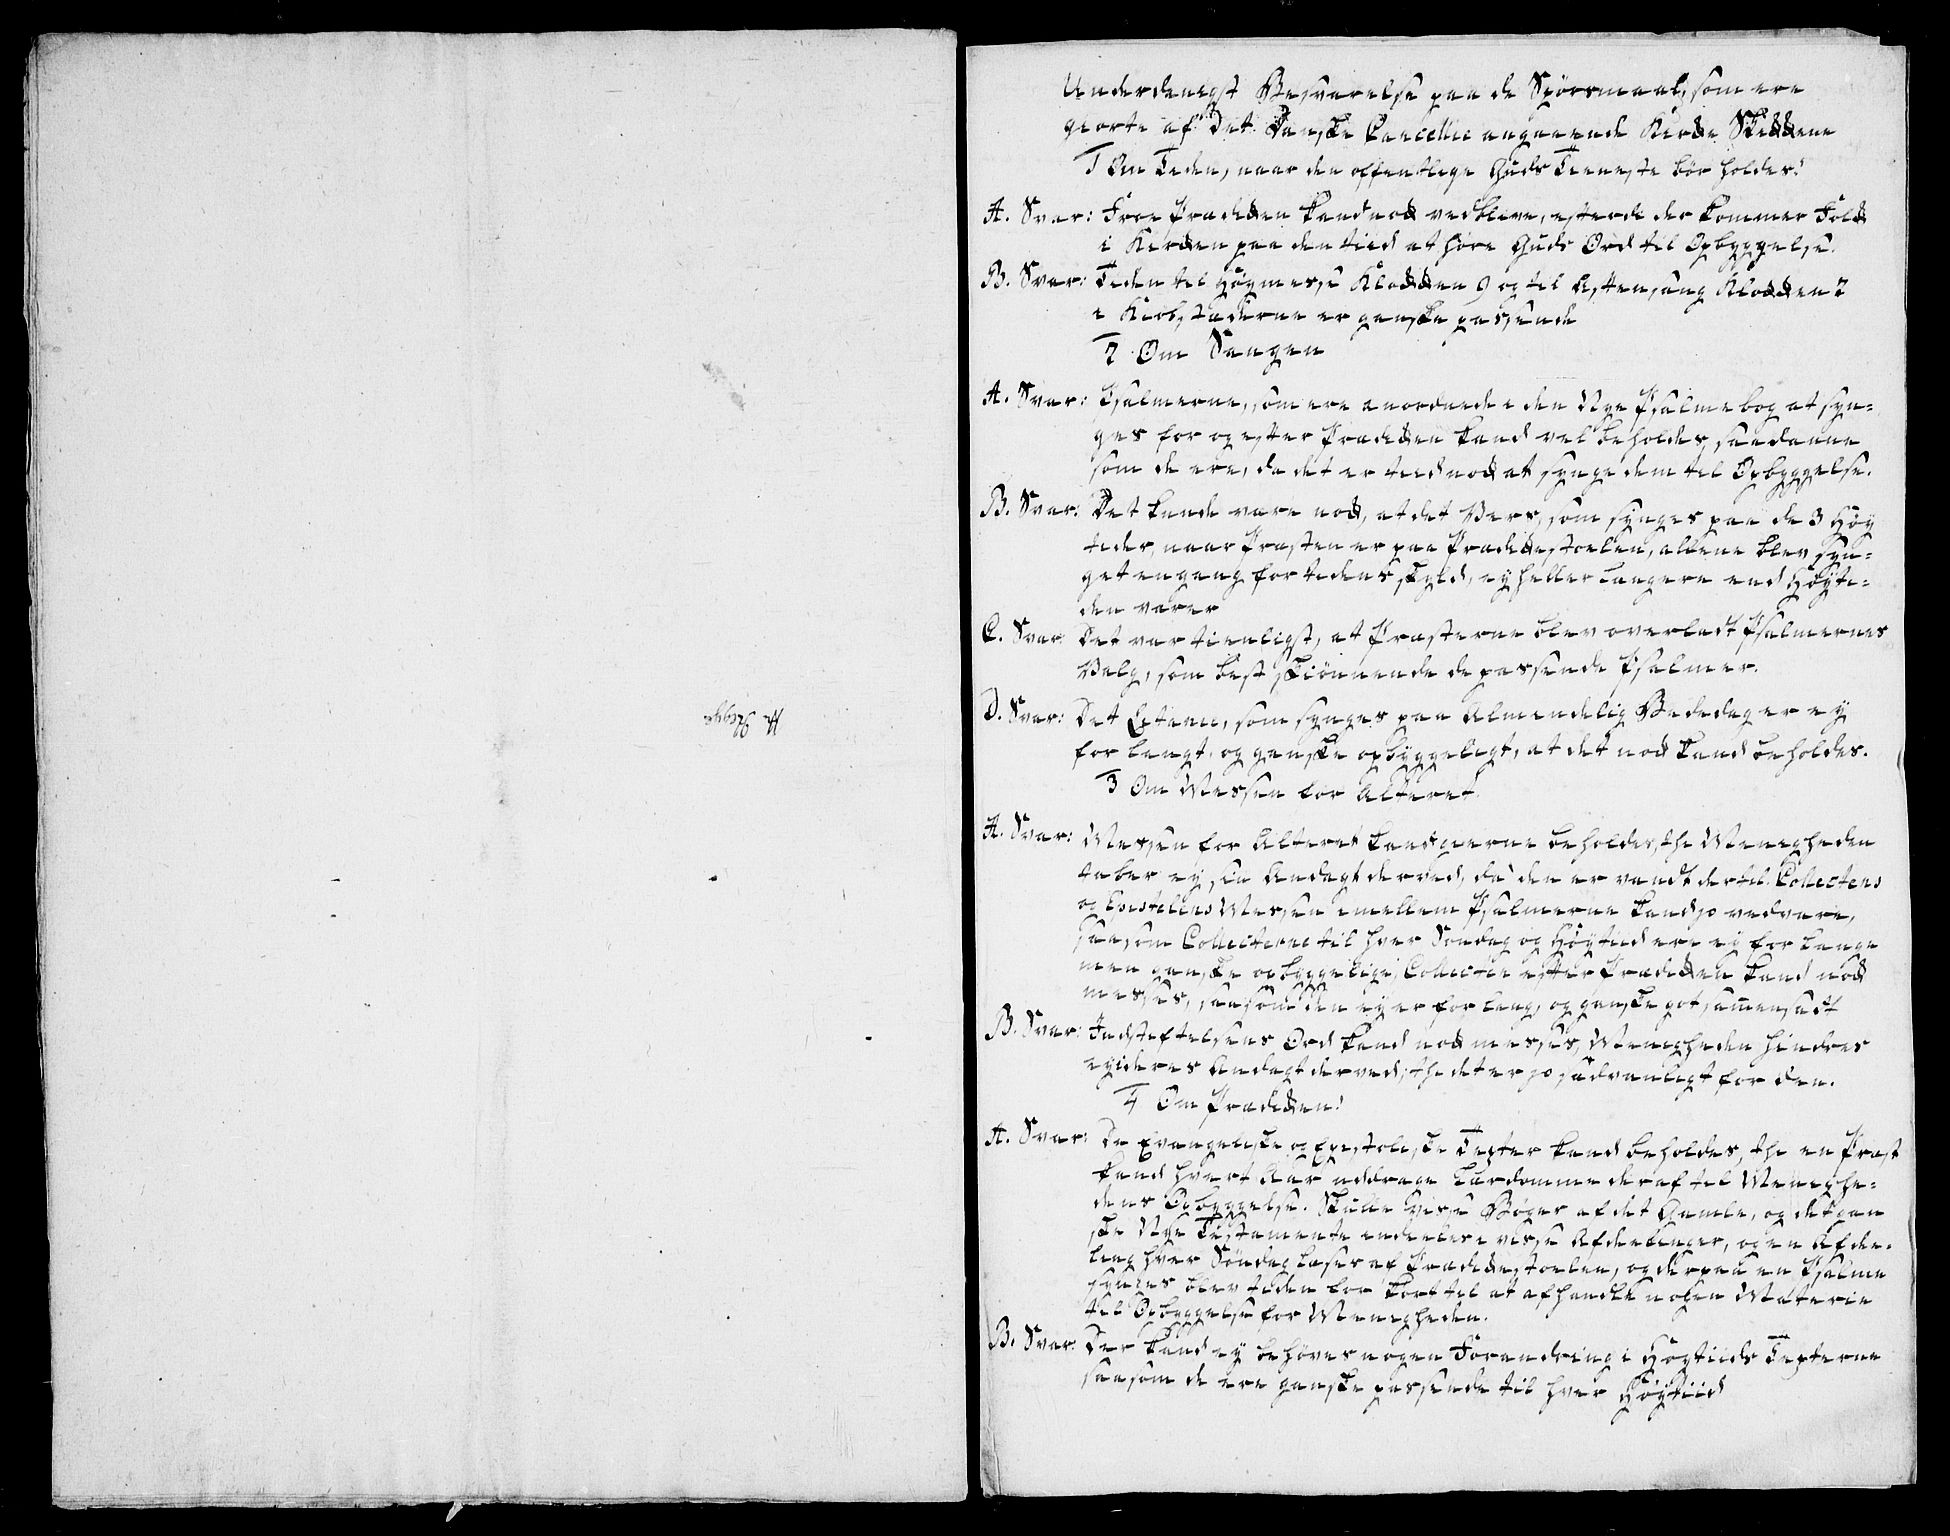 Underdanigst Besvarelse paa de Spørsmaal, som ere
giorte af Det Danske Cancellie angaaende Kirke Skikkene
1 Om Tiden, naar den offentlige Guds Tieneste bør holdes.
A. Svar: Froe Prædiken kand nok vedblive, efterdi der kommer Folk
i Kirken paa den tiid at høre Guds Ord til Opbyggelse.
B. Svar: Tiden til Høymesse Klokken 9 og til Aftensang Klokken 2
i Kiobstæderne er ganske passende
2 Om Sangen
A. Svar: Psalmerne, som ere anordnede i den Nye Psalmebog at syn-
ges for og efter Prædiken kand vel beholdes, saadanne
som de ere, da det er tiid nok at synge dem til Opbyggelse.
B. Svar: Det kunde være nok, at det Vers, som synges paa de 3 Høy
tider, naar Præsten er paa Prædikestoelen, allene blev syn-
get engang for tidens skyld, ey heller længere end Høyti-
den varer
C. Svar Det var tienligst, at Præsterne blev overladt Psalmernes
Valg, som best skiønnende de passende Psalmer.
D. Svar: Det Litanie, som synges paa Almendelig Bededag er ey
for langt, og ganske opbyggeligt, at det nok kand beholdes.
3 Om Messen for Alteret.
A. Svar: Messen for Alteret kand gierne beholdes, thi Menigheden
taber ey sin Andagt derved, da den er vandt dertil. Collectens
og Epistelens Messen imellem Psalmerne kand jo vedvare,
saasom Collecterne til hver Søndag og Høytiid ere ey for lange
men ganske opbyggelige; Collecten efter Prædiken kand nok
messes, saasom den ey er for lang, og ganske got samensadt
B. Svar: Indstiftelsens Ord kand nok messes, Menigheden hindres
ey i deres Andagt derved, thi det er jo sædvanligt for den.
4 Om Prædiken.
A. Svar: De Evangeliske og Epistoliske Texter kand beholdes, thi en Præst
kand hvert Aar uddrage Lærdomme deraf til Menighe-
dens Opbyggelse. Skulle visse Bøger af det Gamle, og det gan
ske Nye Testamente inddeeles i visse Afdeelinger, og en Afde-
ling hver Søndag læses af Prædikestoelen, og derpaa en Psalme
synges blev tiden for kort til at afhandle nogen Materie
til Opbyggelse for Menigheden.
B. Svar: Der kand ey behøves nogen Forandring i Høytiids Texterne
saasom de ere ganske passende til hver Høytiid